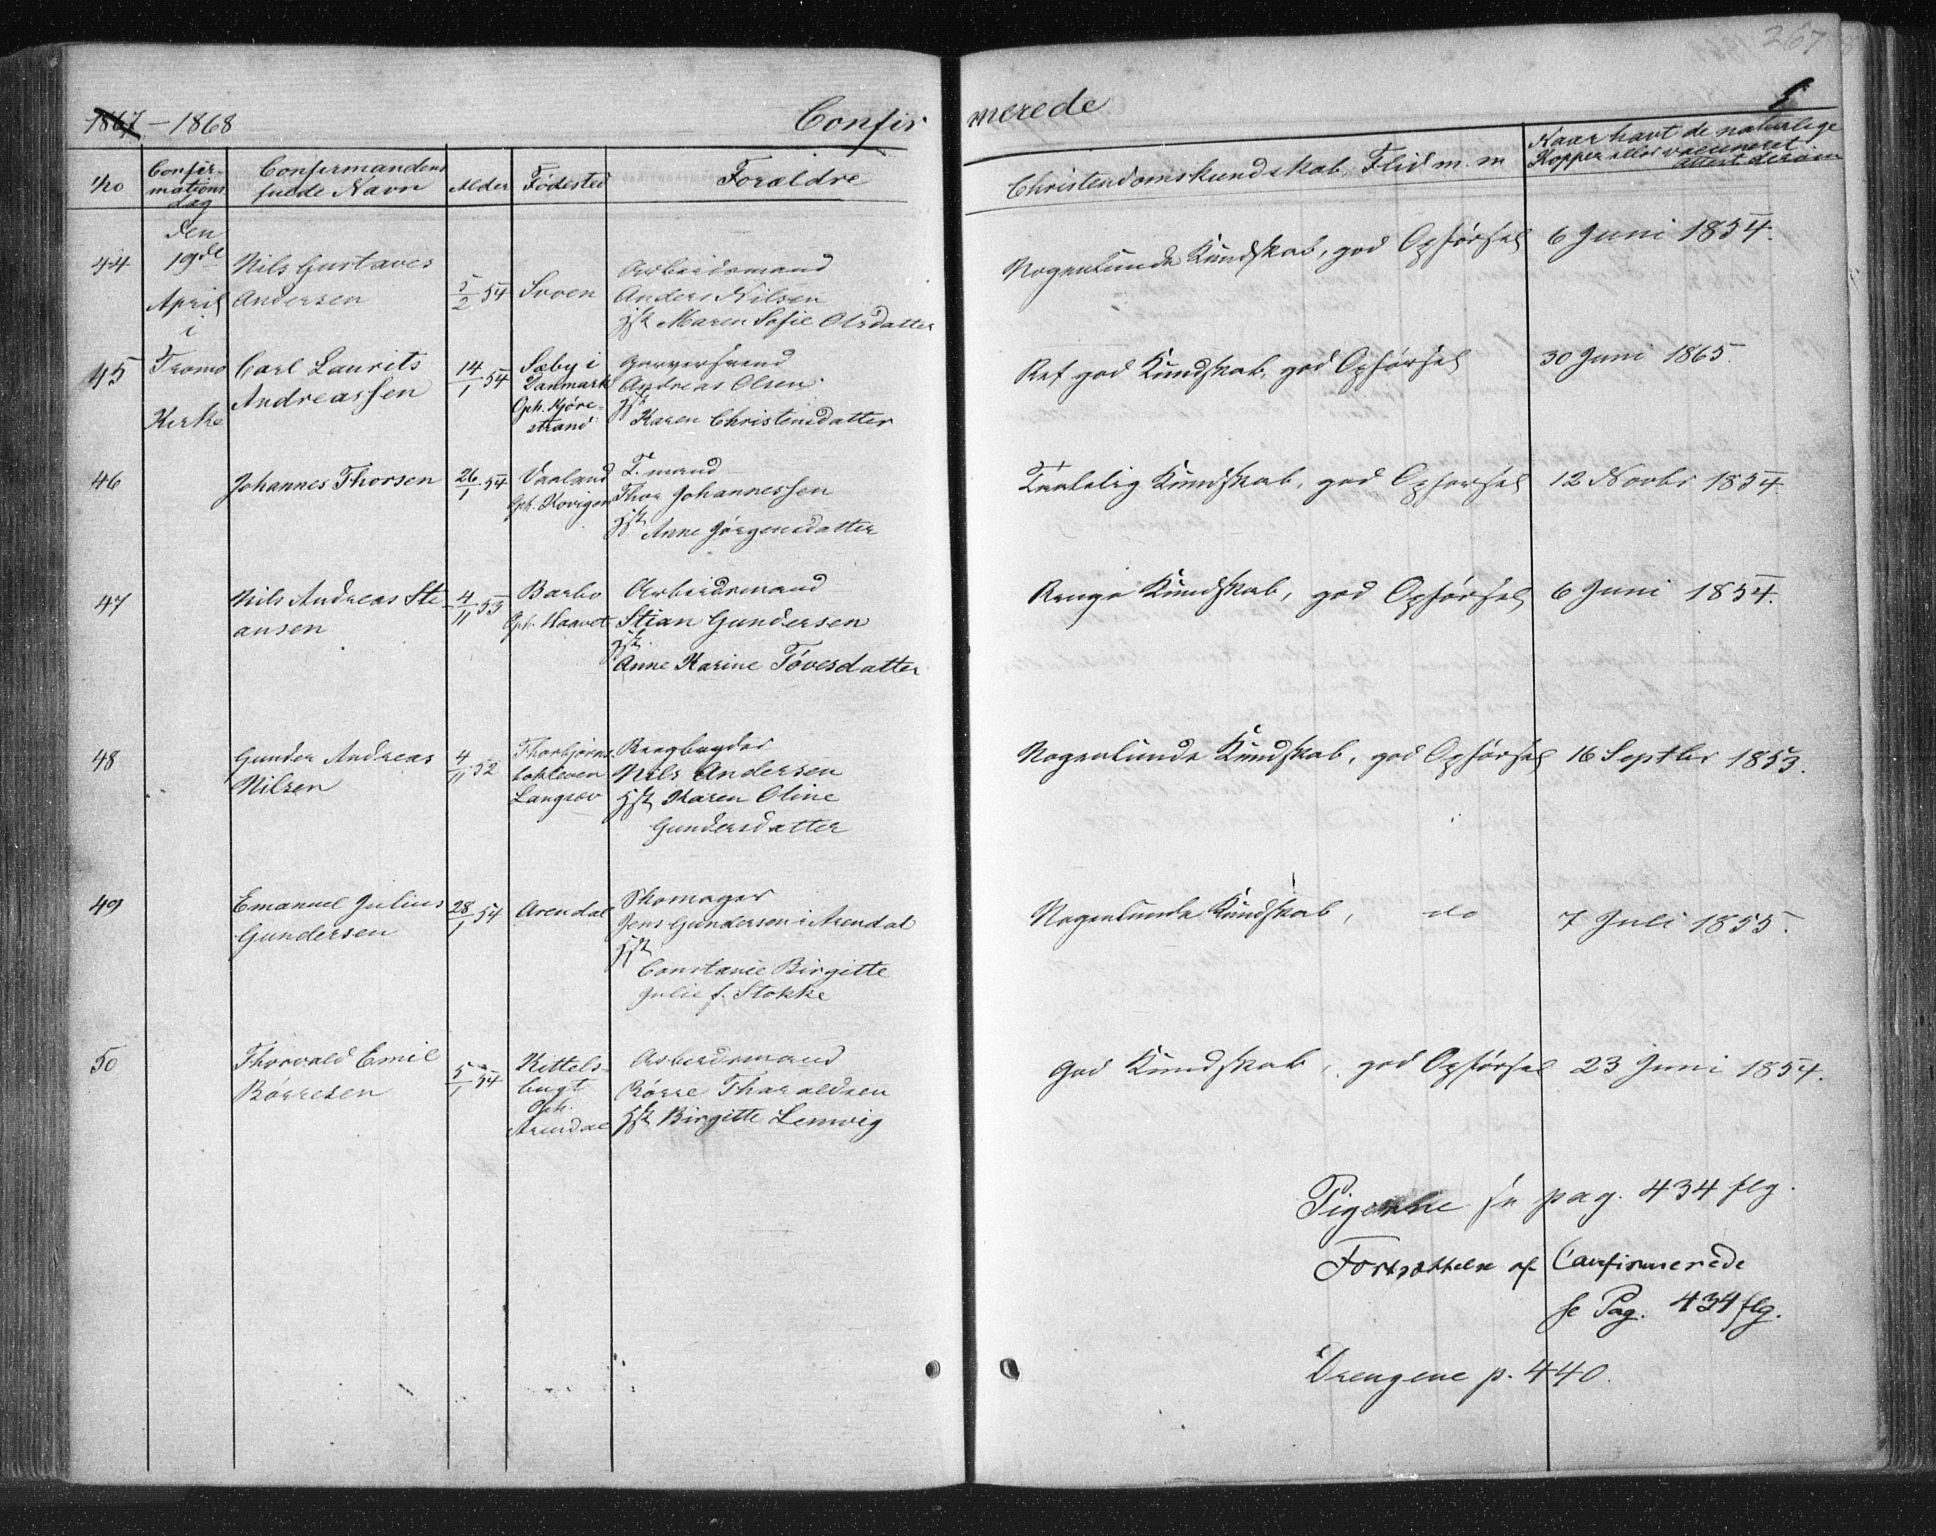 267
1867 - 1868 Confirmerede
No Confirmations Dag Confirmandens fulde Navn Alder Fødested Forældre Christendomskundskab, Flid m. m Naar havt de naturlige Kopper eller vaccineret. attest derom
den 19de April i Tromø Kirke
44 Nils Gustaves Andersen 5/2 54 Arbeidsmand Anders Nilsen Hst Maren Sofie Olsdatter Nogenlunde Kundskab, god Opførsel 6 Juni 1854.
45 Carl Laurits Andreassen 14/1 54 Sæby i Danmark Oph. Kjørestrand Garversvend Andreas Olsen Hst Karen Christensdatter Ret god Kundskab, god Opførsel 30 Juni 1865.
46 Johannes Thorsen 26/1 54 Vraland Oph. Kovigen T. mand Thor Johannessen Hst Anne Jørgensdatter Taalelig Kundskab, god Opførsel 12 Novbr 1854
47 Nils Andreas Stiansen 4/11 53 Barbo Oph. Haavet Arbeidsmand Stian Gundersen Hst. Anne Karine Tøvesdatter Ringe Kundskab, god Opførsel 6 Juni 1854.
48 Gunder Andreas Nilsen 4/11 52 Langsæv Nils Andersen Hst Karen Oline Gundersdatter Nogenlunde Kundskab, god Opførsel 16 Septbr 1853.
49 Emanuel Julius Gundersen 28/1 54 Arendal Skomager Jens Gundersen i Arendal Hst Constance Birgitte Julie f. Stokke Nogenlunde Kundskab, do 7 Juli 1855.
50 Thorvald Emil Børresen 5/1 54 Kittelsbugt Oph. Arendal Arbeidsmand Børre Tharaldsen Hst Birgitte Lemvig God Kundskab, god Opførsel 23 Juni 1854.
Pigerne se pag. 434 flg.
Fortsættelse af Confirmerede
se Pag. 434 flg.
Drengene p. 440.